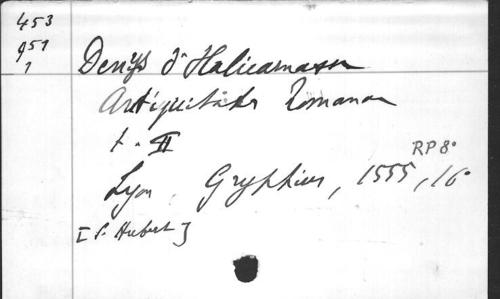 453
951
1
Denys d'Halicarnasse
Antiquitates Romanae
t. II
RP 8°
Lyon, Gryphius, 1555, 16°
[S. Hubert]